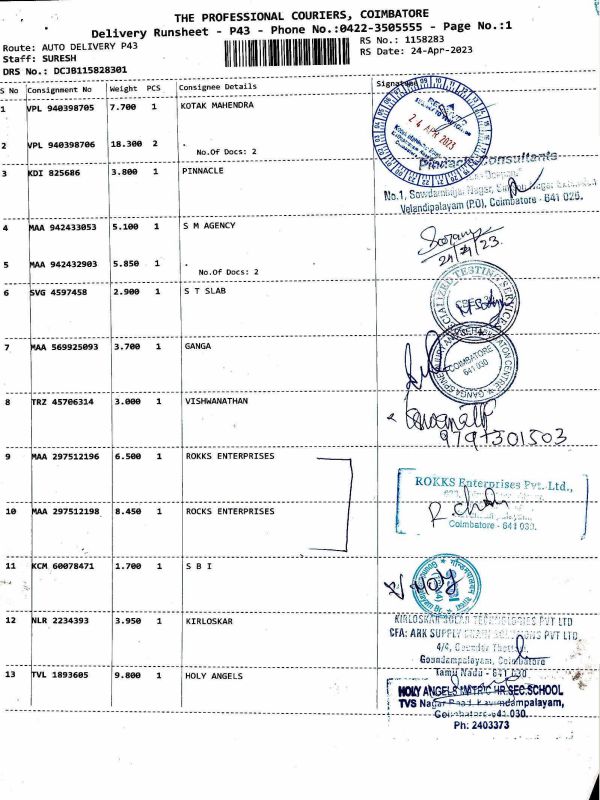 THE PROFESSIONAL COURIERS, COIMBATORE
Delivery Runsheet - P43 - Phone No.:0422-3505555 - Page No.:1
Route: AUTO DELIVERY P43
RS No.: 1158283
Staff: SURESH
RS Date: 24-Apr-2023
DRS No.: DCJB115828301
S No Consignment No Weight PCS Consignee Details Signature
1 VPL 940398705 7.700 1 KOTAK MAHENDRA
24 APR 2023
2 VPL 940398706 18.300 2 .
No.Of Docs: 2
3 KDI 825686 3.800 1 PINNACLE
Pinnacle Consultants
No.1, Sowdambiga Nagar,
Velandipalayam (P.O), Coimbatore - 641 025.
4 MAA 942433053 5.100 1 S M AGENCY
24/4/23
5 MAA 942432903 5.850 1 .
No.Of Docs: 2
6 SVG 4597458 2.900 1 S T SLAB
SPECIALIZED TESTING SERVICES
7 MAA 569925093 3.700 1 GANGA
COIMBATORE
641 030
8 TRZ 45706314 3.000 1 VISHWANATHAN
9797301503
9 MAA 297512196 6.500 1 ROKKS ENTERPRISES
ROKKS Enterprises Pvt. Ltd.,
10 MAA 297512198 8.450 1 ROCKS ENTERPRISES
Coimbatore - 641 030.
11 KCM 60078471 1.700 1 S B I
12 NLR 2234393 3.950 1 KIRLOSKAR
KIRLOSKAR SOLAR TECHNOLOGIES PVT LTD
CFA: ARK SUPPLY CHAIN SOLUTIONS PVT LTD,
4/4, Gounder Thottam,
Goundampalayam, Coimbatore
Tamil Nadu - 641 030
13 TVL 1893605 9.800 1 HOLY ANGELS
HOLY ANGELS MATRIC HR SEC.SCHOOL
TVS Nagar Road, Kavundampalayam,
Coimbatore-641 030.
Ph: 2403373